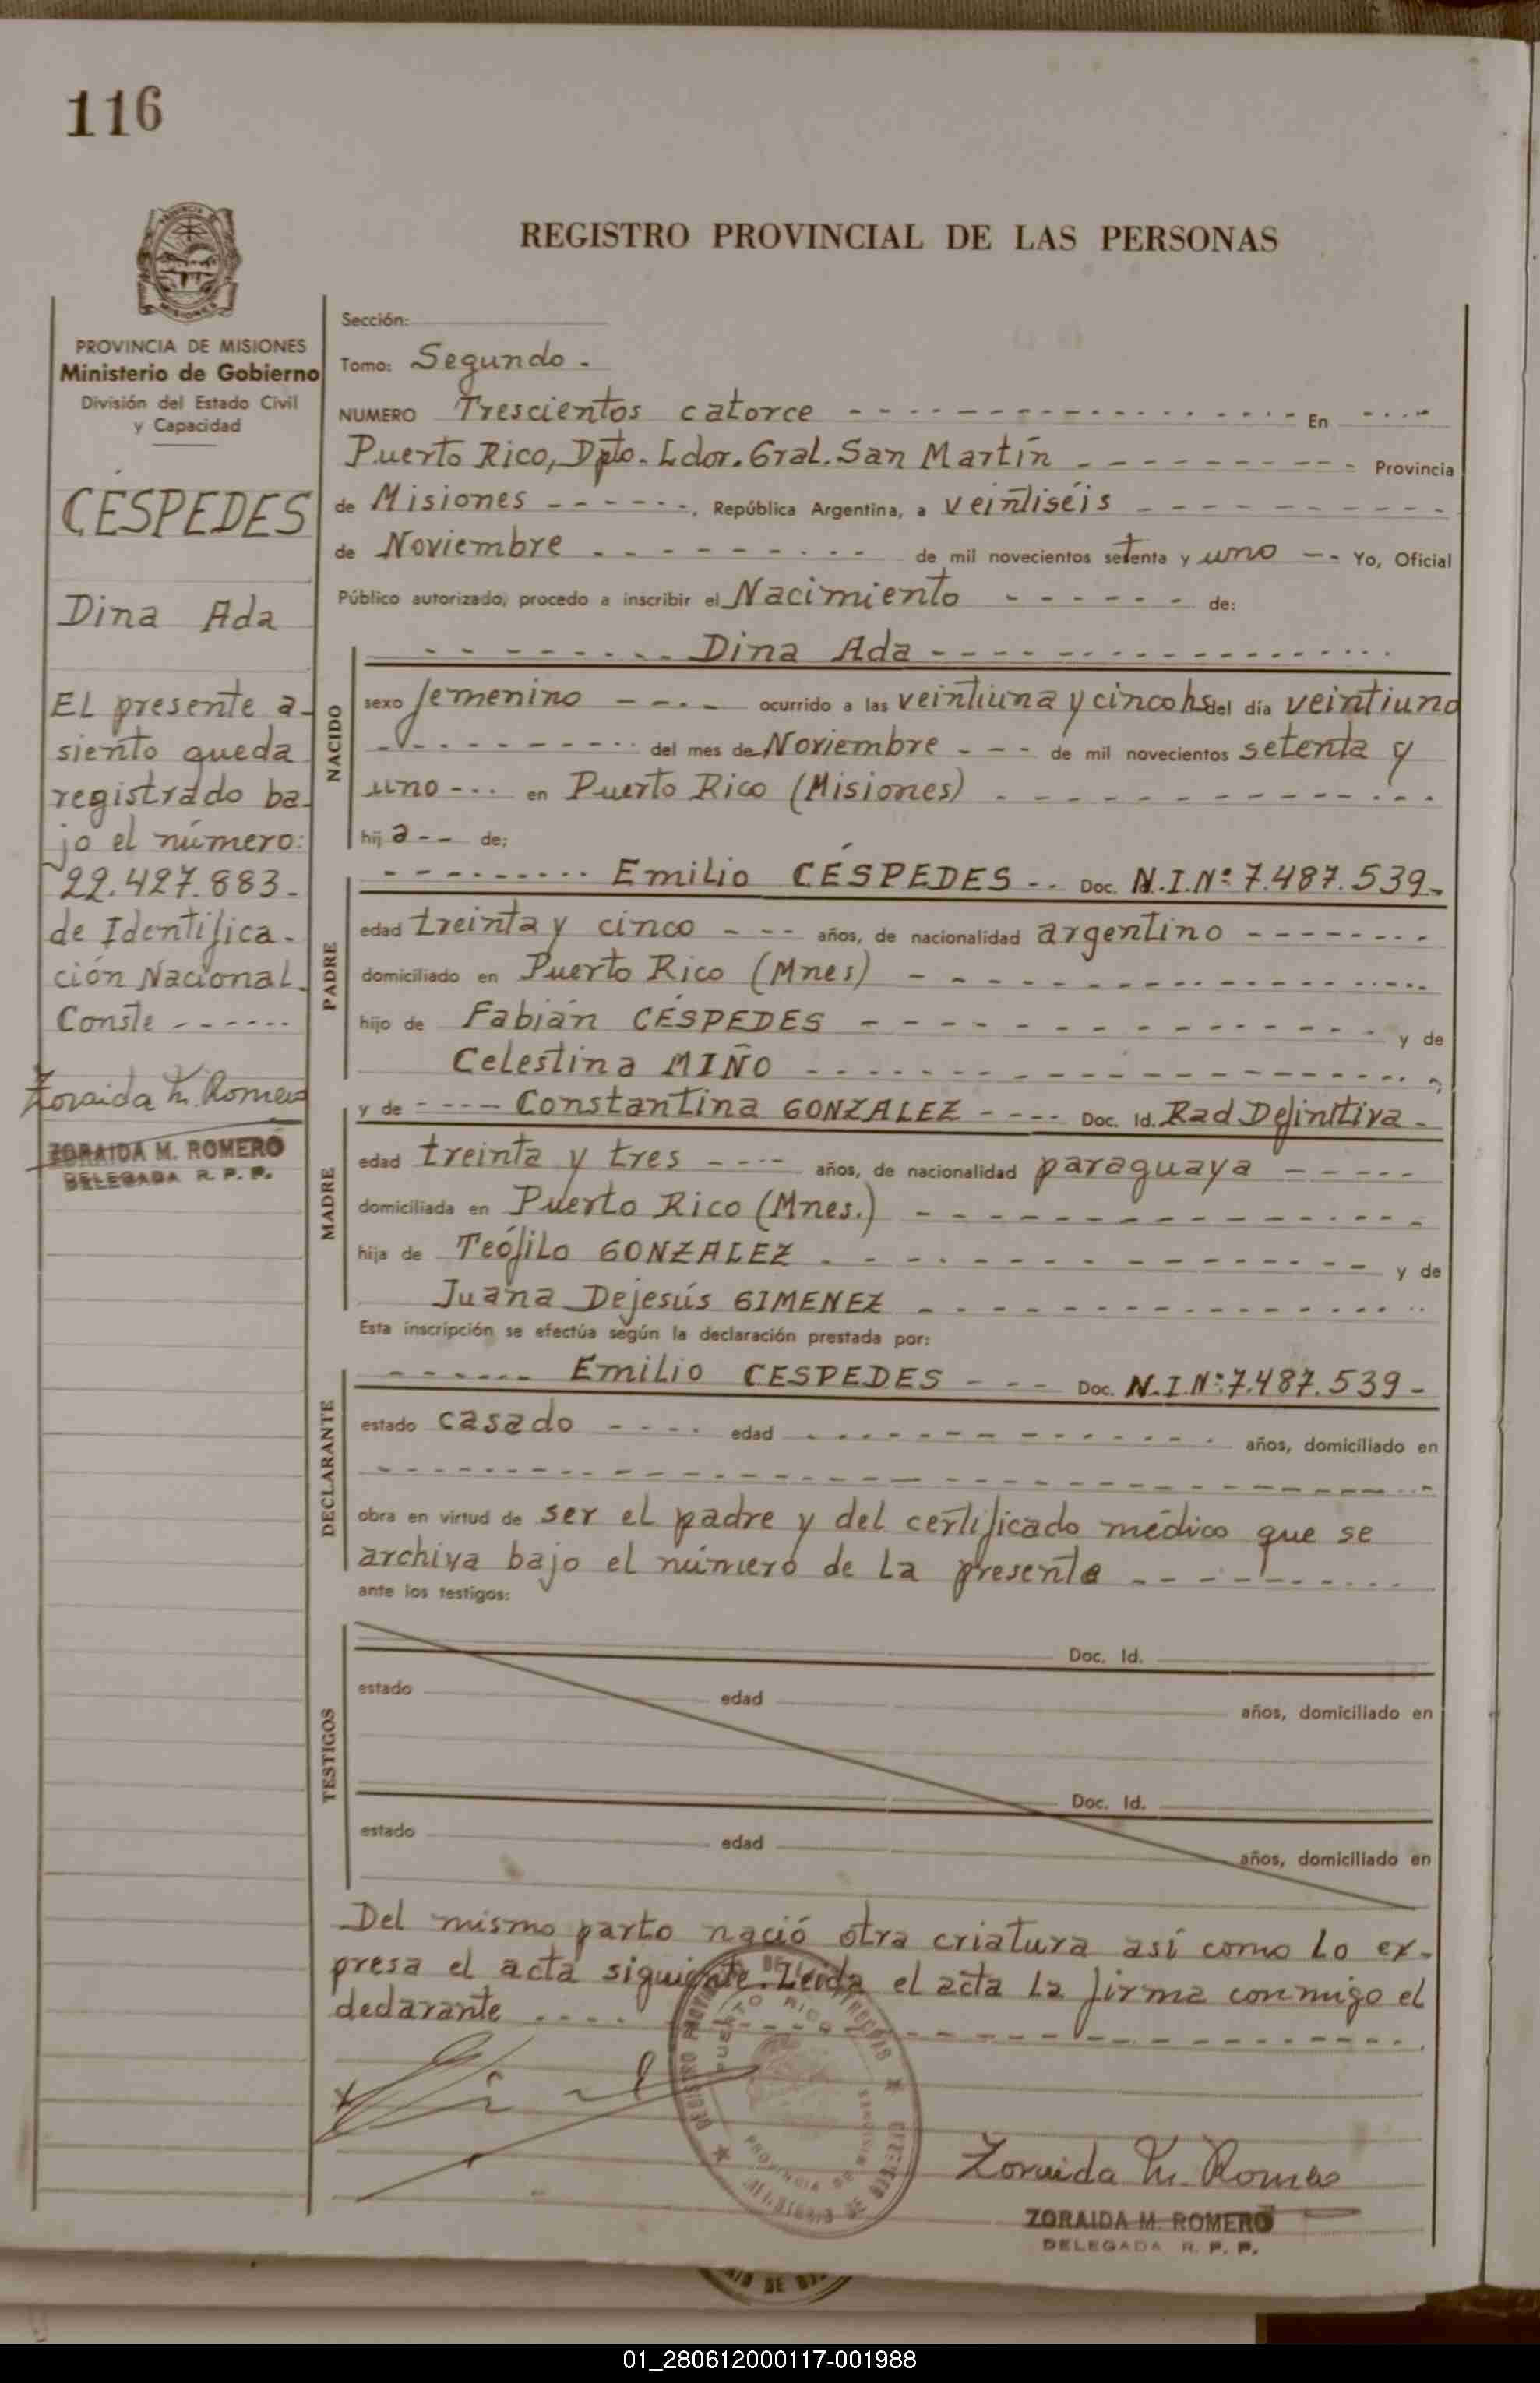 116
REGISTRO PROVINCIAL DE LAS PERSONAS
PROVINCIA DE MISIONES
Ministerio de Gobierno
División del Estado Civil
y Capacidad
CÉSPEDES
Dina Ada
El presente a-
siento queda
registrado ba-
jo el número:
22.427.883-
de Identifica-
ción Nacional.
Conste ------
Zoraida M. Romero
ZORAIDA M. ROMERO
DELEGADA R. P. P.
Sección:
Tomo: Segundo.
NUMERO Trescientos catorce - - - - En - - -
Puerto Rico, Dpto. Ldor. Gral. San Martín - - - - Provincia
de Misiones - - - - , República Argentina, a veintiséis - - - -
de Noviembre - - - - de mil novecientos setenta y uno -- Yo, Oficial
Público autorizado, procedo a inscribir el Nacimiento - - - - de:
NACIDO
- - - - Dina Ada - - - -
sexo femenino - - - - ocurrido a las veintiuna y cinco hs del día veintiuno
- - - - del mes de Noviembre - - - de mil novecientos setenta y
uno - - - en Puerto Rico (Misiones) - - - -
hij a - - de:
PADRE
- - - - Emilio CÉSPEDES - - Doc. N.I.Nº 7.487.539-
edad treinta y cinco - - - años, de nacionalidad argentino - - - -
domiciliado en Puerto Rico (Mnes) - - - -
hijo de Fabián CÉSPEDES - - - - y de
Celestina MIÑO - - - - ;
MADRE
y de - - - - Constantina GONZALEZ - - - - Doc. Id. Rad Definitiva -
edad treinta y tres - - - - años, de nacionalidad paraguaya - - - -
domiciliada en Puerto Rico (Mnes.) - - - -
hija de Teófilo GONZALEZ - - - - y de
Juana Dejesús GIMENEZ - - - -
Esta inscripción se efectúa según la declaración prestada por:
DECLARANTE
- - - - Emilio CESPEDES - - - Doc. N.I.Nº 7.487.539-
estado casado - - - - edad - - - - años, domiciliado en
- - - -
obra en virtud de ser el padre y del certificado médico que se
archiva bajo el número de la presente - - - -
ante los testigos:
TESTIGOS
Doc. Id.
estado edad años, domiciliado en
Doc. Id.
estado edad años, domiciliado en
Del mismo parto nació otra criatura así como lo ex-
presa el acta siguiente. Leída el acta la firma conmigo el
declarante - - - -
PUERTO RICO
PROVINCIA DE MISIONES
Zoraida M. Romero
ZORAIDA M. ROMERO
DELEGADA R. P. P.
01_280612000117-001988